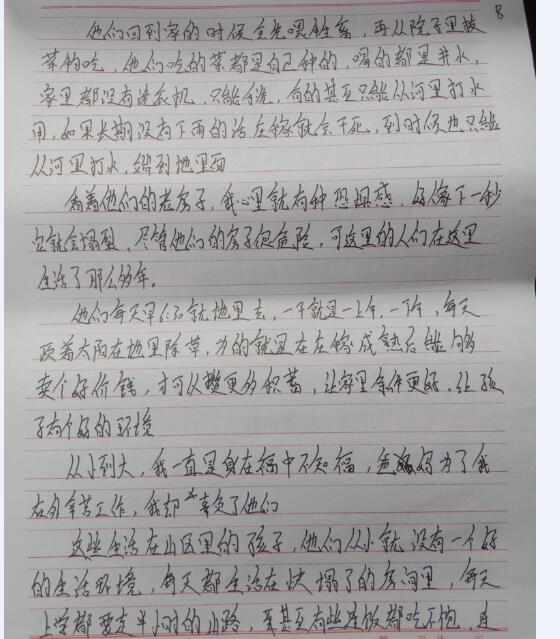 8
他们回到家的时候会先喂牲畜，再从院子里拔
菜的吃，他们吃的菜都是自己种的，喝的都是井水，
家里都没有洗衣机，只能手洗，有的甚至只能从河里打水
用，如果长期没有下雨的话庄稼就会干死，到时候也只能
从河里打水，到地里面
看着他们的老房子，我心里就有种恐惧感，好像下一秒
它就会塌裂，尽管他们的房子很危险，可这里的人们在这里
生活了那么多年。
他们每天早上就地里去，一干就是一上午，一下午，每天
顶着太阳在地里除草，为的就是在庄稼成熟后能够
卖个好价钱，才可以攒更多积蓄，让家里条件更好，让孩
子有个好的环境
从小到大，我一直是身在福中不知福，爸妈为了我
在外辛苦工作，我却辜负了他们
这些生活在山区里的孩子，他们从小就没有一个好
的生活环境，每天都生活在快塌了的房间里，每天
上学都要走半小时的山路，至甚至有些连饭都吃不饱，连